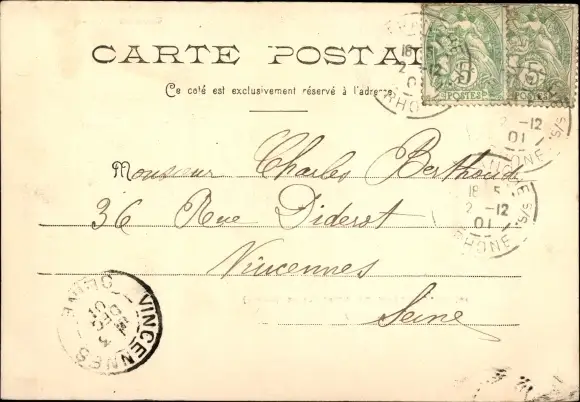 CARTE POSTALE
Ce coté est exclusivement réservé à l'adresse
5 5
POSTES POSTES
18 5
2 -12
01
RHONE
-12
01
RHONE S/S
18 5
2 -12
01
RHONE S/S
Monsieur Charles Berthoud
36 Rue Diderot
Vincennes
Seine
VINCENNES
SEINE
3
DEC
01